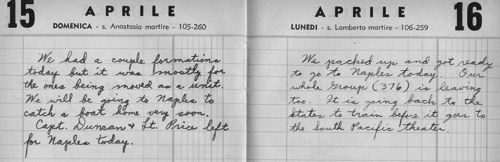 15 APRILE
DOMENICA - s. Anastasia martire - 105-260
We had a couple formations
today but it was mostly for
the ones being moved as a unit.
We will be going to Naples to
catch a boat home very soon.
Capt. Duncan & Lt. Price left
for Naples today.
APRILE 16
LUNEDI - s. Lamberto martire - 106-259
We packed up and got ready
to go to Naples today. Our
whole Group (376) is leaving
too. It is going back to the
States to train before it goes to
the South Pacific theater.